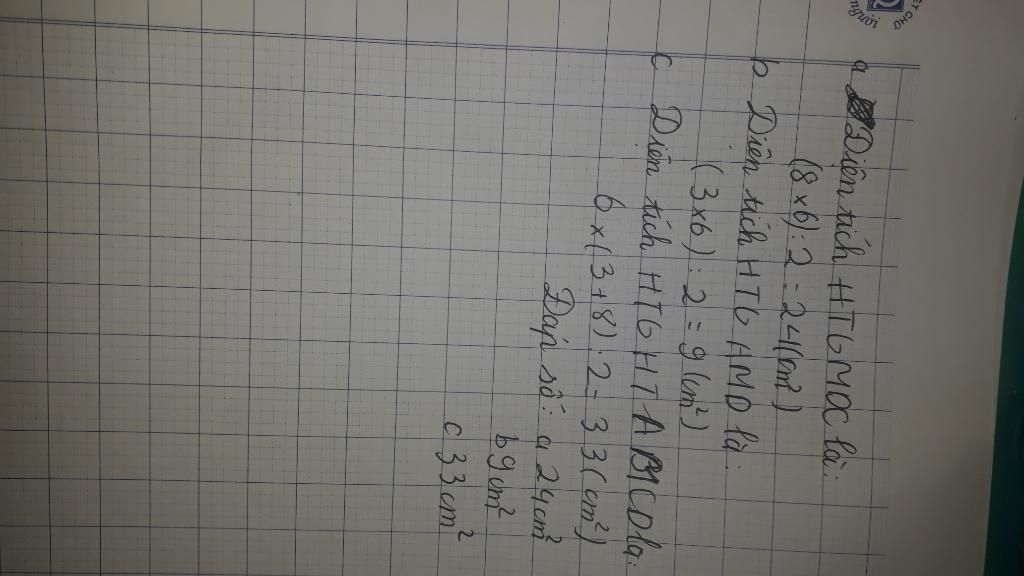 a Diện tích HTG MDC là:
(8 x 6) : 2 = 24 (cm²)
b Diện tích HTG AMD là:
(3 x 6) : 2 = 9 (cm²)
c Diện tích HTG HT ABCD là:
6 x (3 + 8) : 2 = 33 (cm²)
Đáp số: a 24 cm²
b 9 cm²
c 33 cm²
người
ẾT CHO